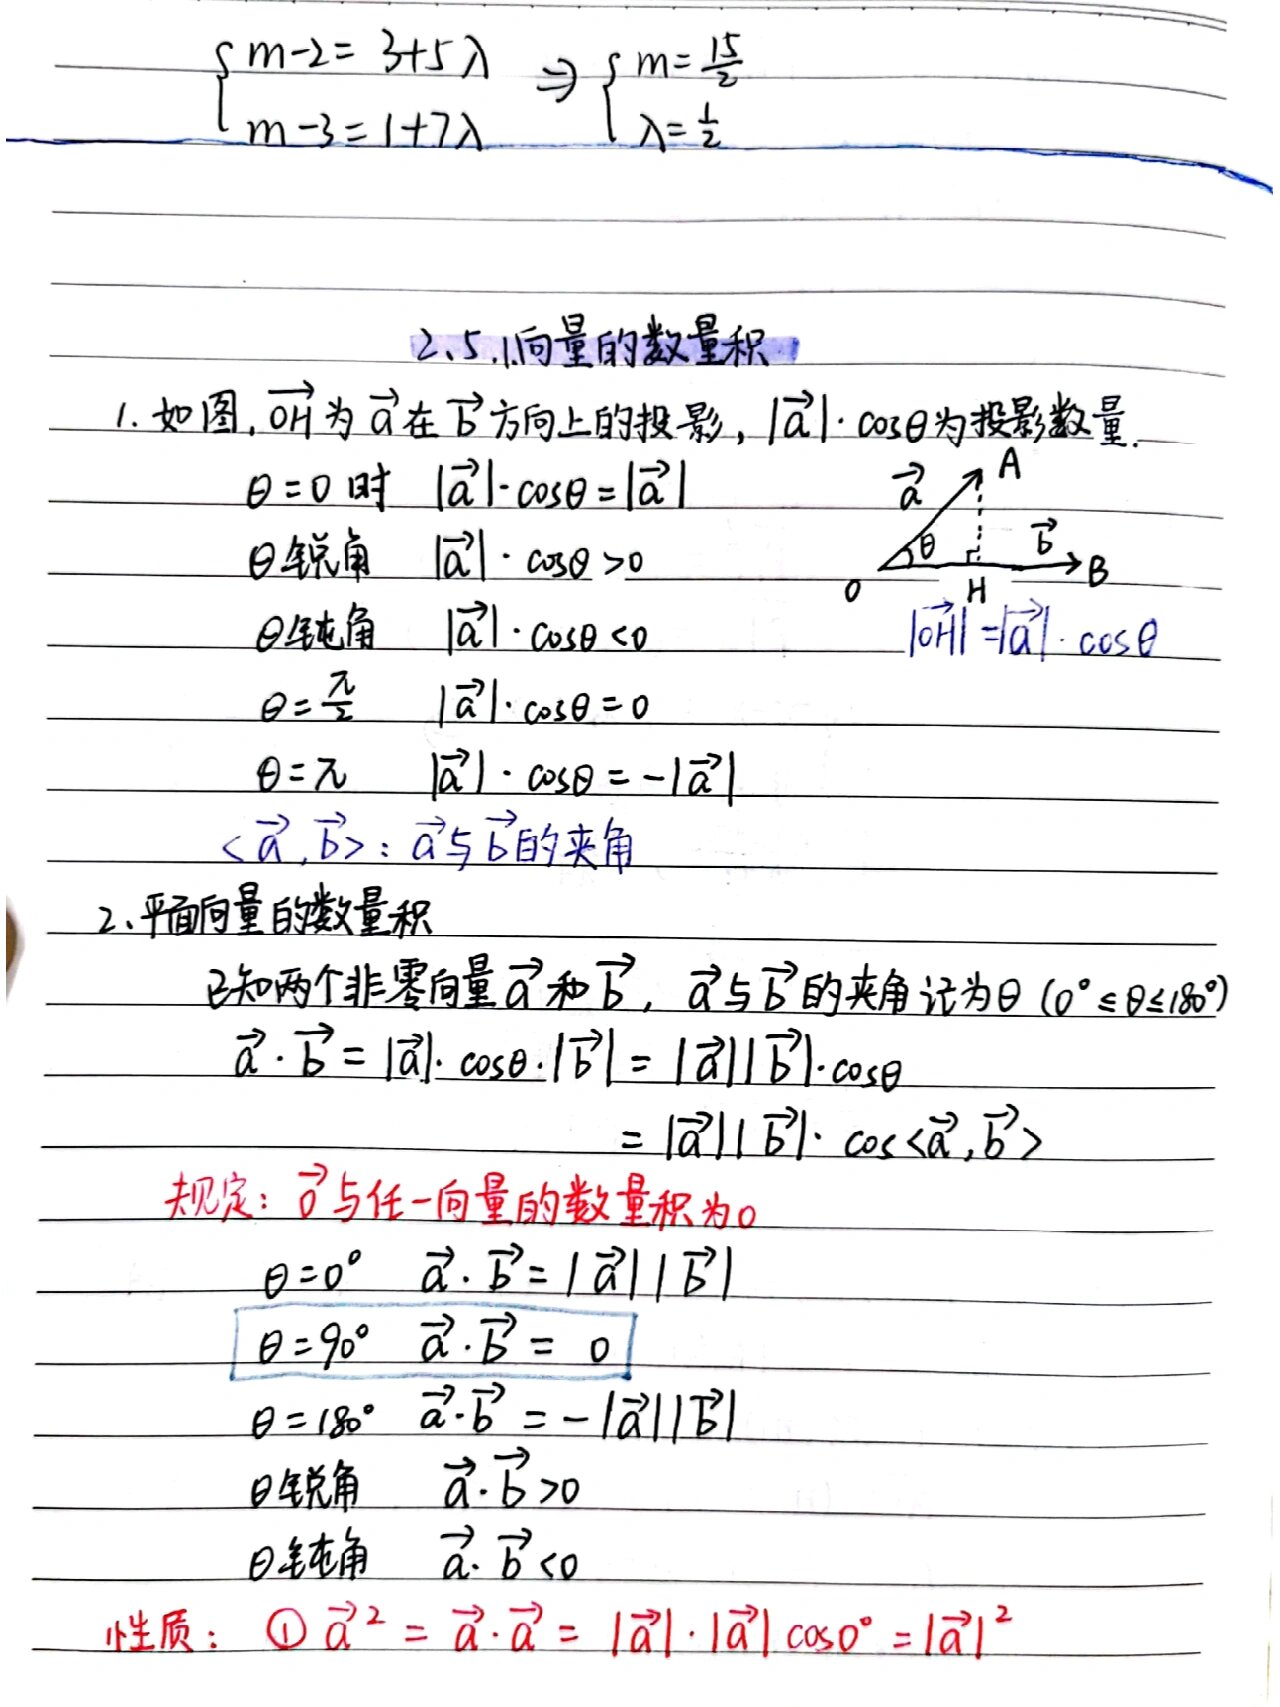 { m-2 = 3+5λ ⇒ { m = 15/2
{ m-3 = 1+7λ { λ = 1/2
2、5.1向量的数量积
1. 如图, OH⃗ 为 a⃗ 在 b⃗ 方向上的投影, |a⃗|·cosθ为投影数量.
θ=0 时 |a⃗|·cosθ=|a⃗|
θ锐角 |a⃗|·cosθ>0
θ钝角 |a⃗|·cosθ<0
θ=π/2 |a⃗|·cosθ=0
θ=π |a⃗|·cosθ=-|a⃗|
a⃗ A
θ b⃗
O H B
|OH⃗|=|a⃗|·cosθ
<a⃗,b⃗>: a⃗与b⃗的夹角
2、平面向量的数量积
已知两个非零向量a⃗和b⃗, a⃗与b⃗的夹角记为θ (0°≤θ≤180°)
a⃗·b⃗=|a⃗|·cosθ·|b⃗|=|a⃗||b⃗|·cosθ
=|a⃗||b⃗|·cos<a⃗,b⃗>
规定: 0⃗与任一向量的数量积为0
θ=0° a⃗·b⃗=|a⃗||b⃗|
θ=90° a⃗·b⃗= 0
θ=180° a⃗·b⃗=-|a⃗||b⃗|
θ锐角 a⃗·b⃗>0
θ钝角 a⃗·b⃗<0
性质: ① a⃗²=a⃗·a⃗=|a⃗|·|a⃗|cos0°=|a⃗|²